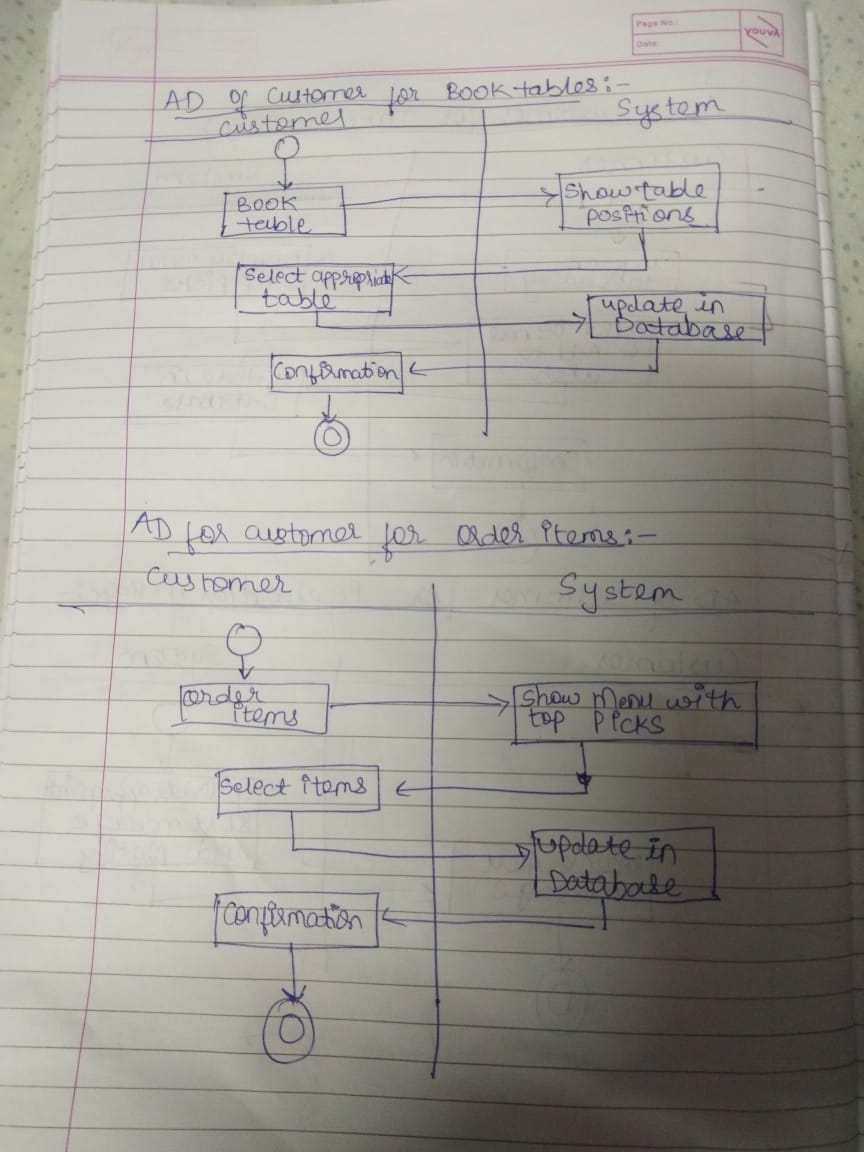 Page No.:
Date:
YOUVA
AD Of Customer for BOOK tables:-
Customer
System
BOOK
table
Show table
positions
Select appropriate
table
update in
Database
Confirmation
AD for customer for order items:-
Customer
System
Order
items
Show Menu with
top Picks
Select items
update in
Database
Confirmation